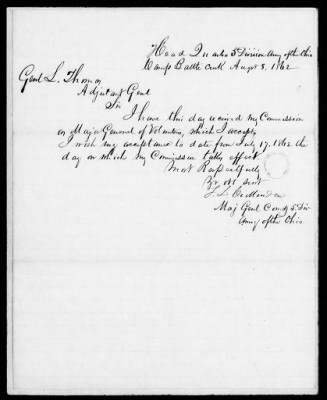 Head Quarters 5th Division Army of the Ohio
Camp Battle Creek Augst 8. 1862
Genl L. Thomas
Adjutant Genl
Sir
I have this day received my Commission
as Major General of Volunteers, which I accept,
I wish my acceptance to date from July 17, 1862 the
day on which my Commission takes effect
Most Respectfully
Yr obt Servt
T. L. Crittenden
Maj Genl Comdg 5th Div
Army of the Ohio